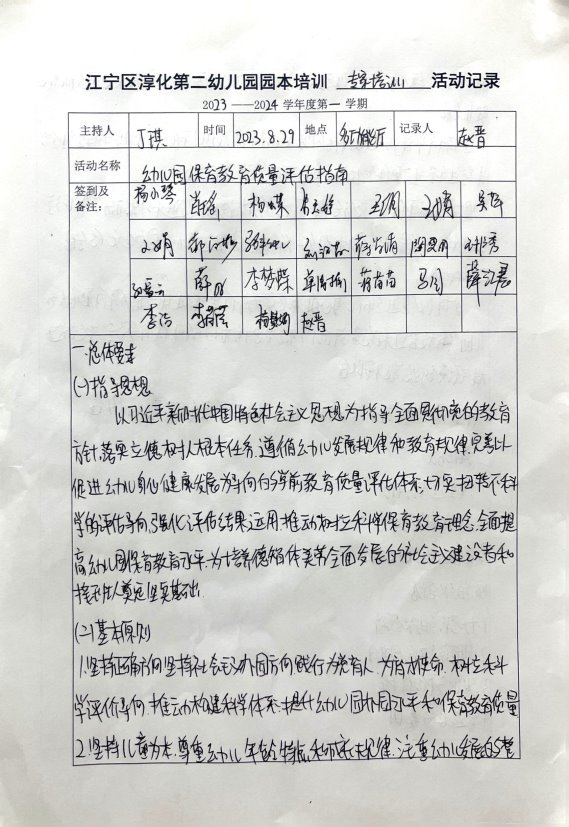 江宁区淳化第二幼儿园园本培训 专家培训 活动记录
2023 ——2024 学年度第一 学期
主持人 丁琪 时间 2023.8.29 地点 多功能厅 记录人 赵晋
活动名称 幼儿园保育教育质量评估指南
签到及 杨小琴 肖铭 杨蝶 王娟 吴萍
备注:
文娟 郝 孙秀
薛 李梦蝶 蒋苗苗 马 薛
李洁 李 杨 赵晋
一.总体要求
(一)指导思想
以习近平新时代中国特色社会主义思想为指导全面贯彻党的教育
方针,落实立德树人根本任务,遵循幼儿发展规律和教育规律,完善以
促进幼儿身心健康发展为导向的学前教育质量评估体系,切实扭转不科
学的评估导向,强化评估结果运用,推动树立科学保育教育理念,全面提
高幼儿园保育教育水平,为培养德智体美劳全面发展的社会主义建设者和
接班人奠定坚实基础.
(二)基本原则
1.坚持正确方向.坚持社会主义办园方向,践行为党育人、为国育才使命,树立科
学评价导向,推动构建科学体系,提升幼儿园办园水平和保育教育质量
2.坚持儿童为本.尊重幼儿年龄特点和成长规律,注重幼儿发展的整